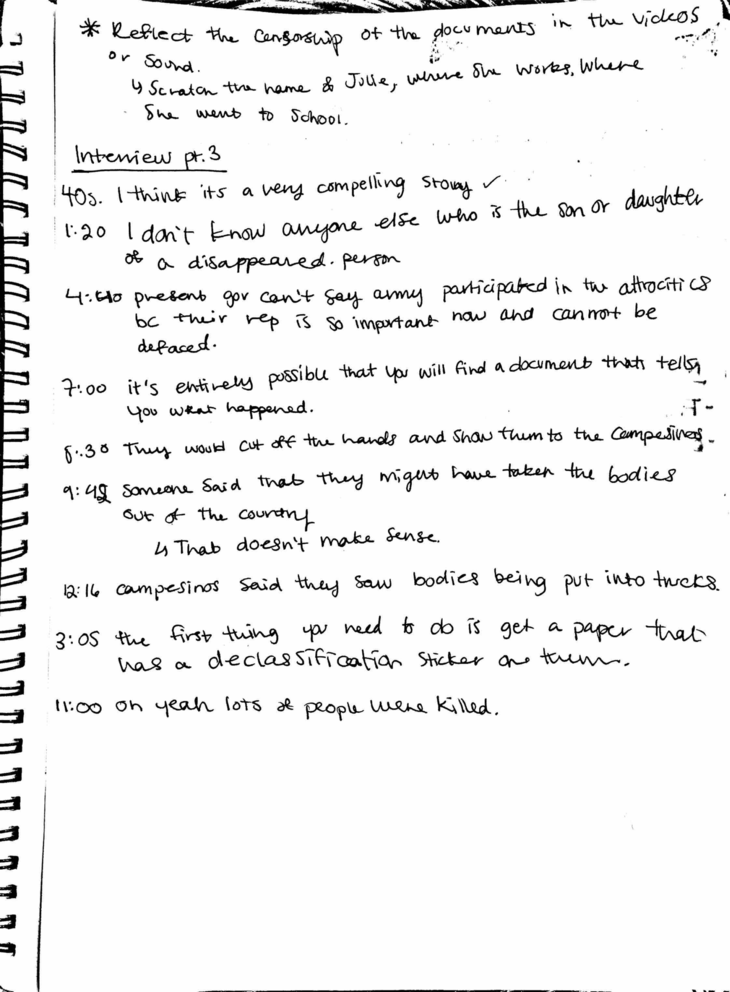 * Reflect the censorship of the documents in the videos
or sound.
↳ Scratch the name of Julie, where she works, where
she went to school.
Interview pt.3
40s. I think its a very compelling story ✓
1:20 I don't know anyone else who is the son or daughter
of a disappeared. person
4:40 present gov can't say army participated in the attrocities
bc their rep is so important now and cannot be
defaced.
7:00 it's entirely possible that you will find a document thats tells
you what happened.
8:30 They would cut off the hands and show them to the campesinos.
9:48 Someone said that they might have taken the bodies
out of the country
↳ That doesn't make sense.
12:16 campesinos said they saw bodies being put into trucks.
3:05 the first thing you need to do is get a paper that
has a declassification sticker one them.
11:00 oh yeah lots of people were killed.